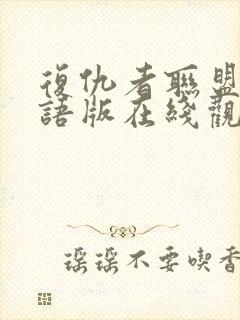 復仇者聯盟
語版在綫觀
瑤瑤不要喫香